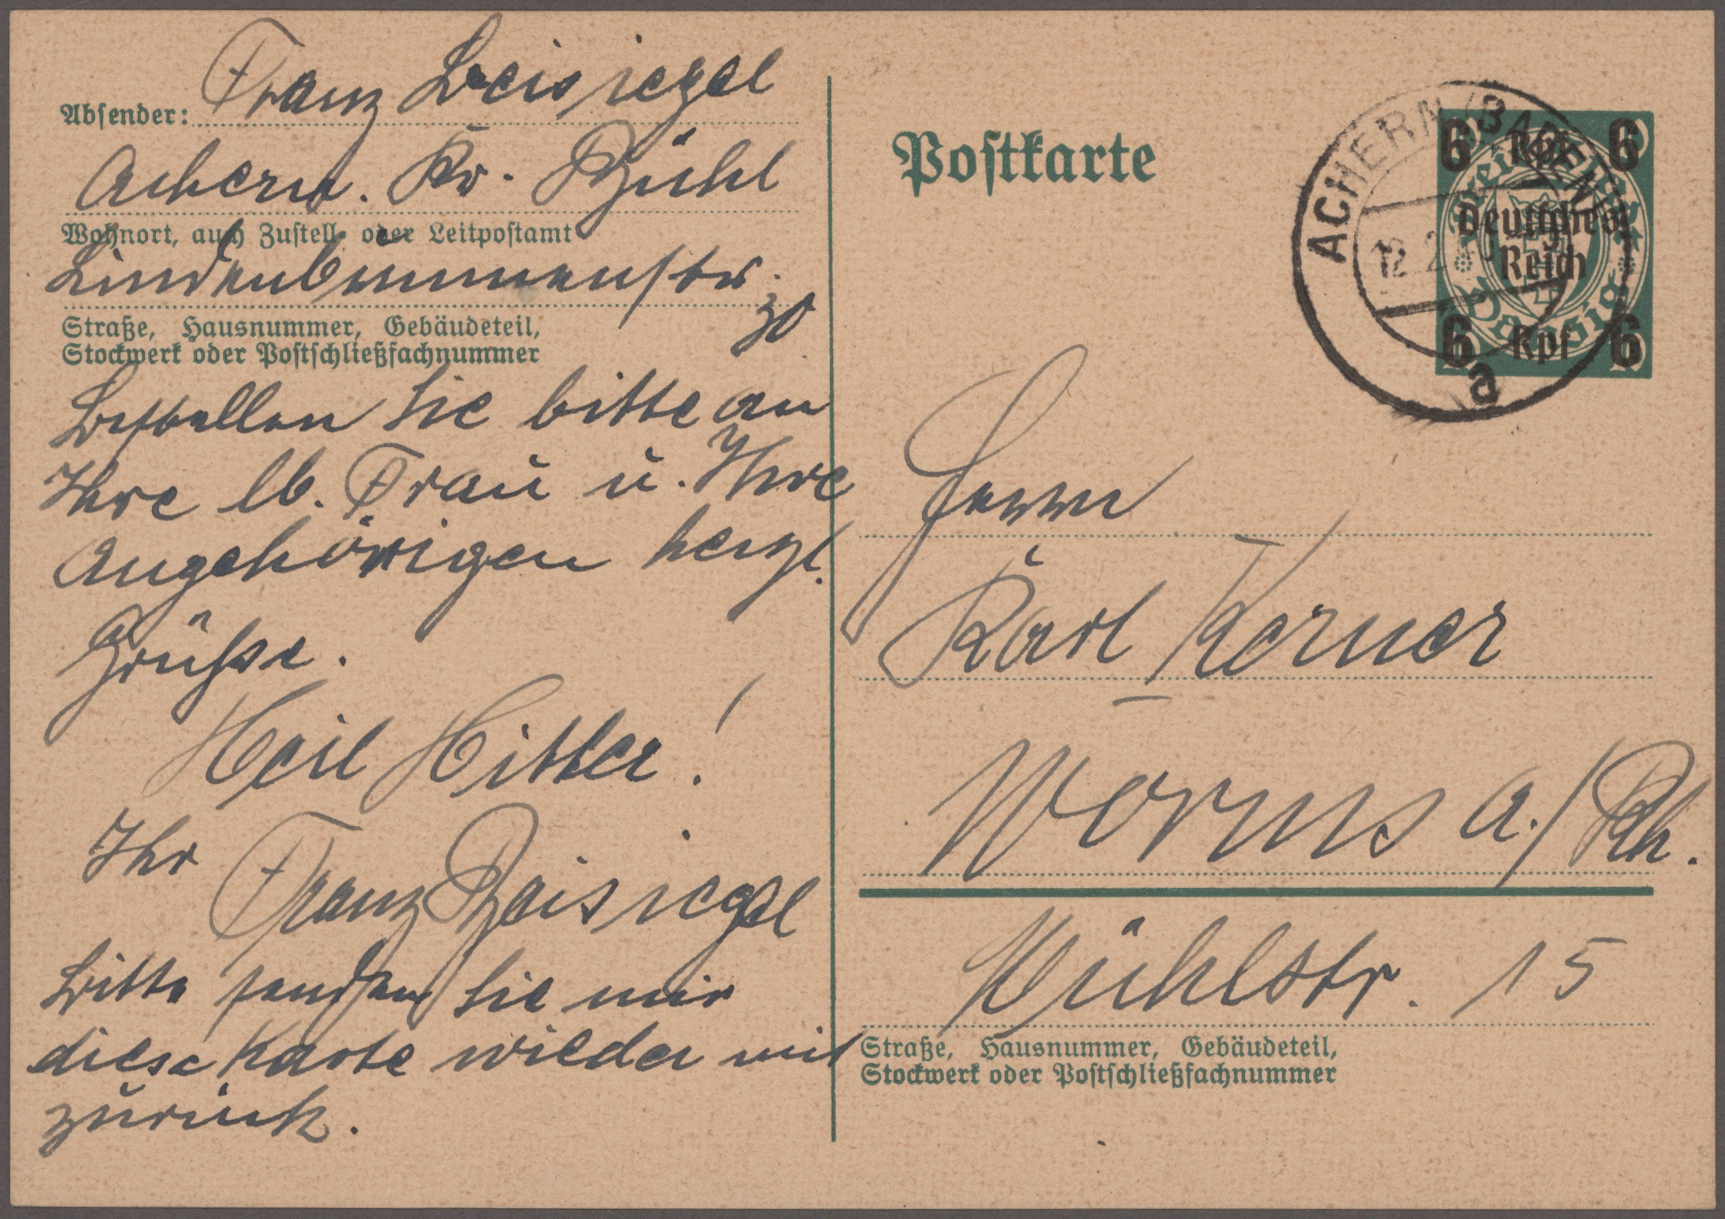 Absender: Franz Beisiegel
Achern. Kr. Bühl
Wohnort, auch Zustell- oder Leitpostamt
Lindenbrunnenstr.
30
Straße, Hausnummer, Gebäudeteil,
Stockwerk oder Postschließfachnummer
Bestellen Sie bitte an
Ihre lb. Frau u. Ihre
Angehörigen herzl.
Grüsse.
Heil Hitler!
Ihr
Franz Beisiegel
Bitte senden Sie mir
diese Karte wieder mit
zurück.
Postkarte
ACHERN (BADEN)
12.2.
a
6 Rpf 6
Deutsches
Reich
6 Rpf 6
Freie Stadt
Danzig
Herrn
Karl Kerner
Worms a./Rh.
Mühlstr. 15
Straße, Hausnummer, Gebäudeteil,
Stockwerk oder Postschließfachnummer